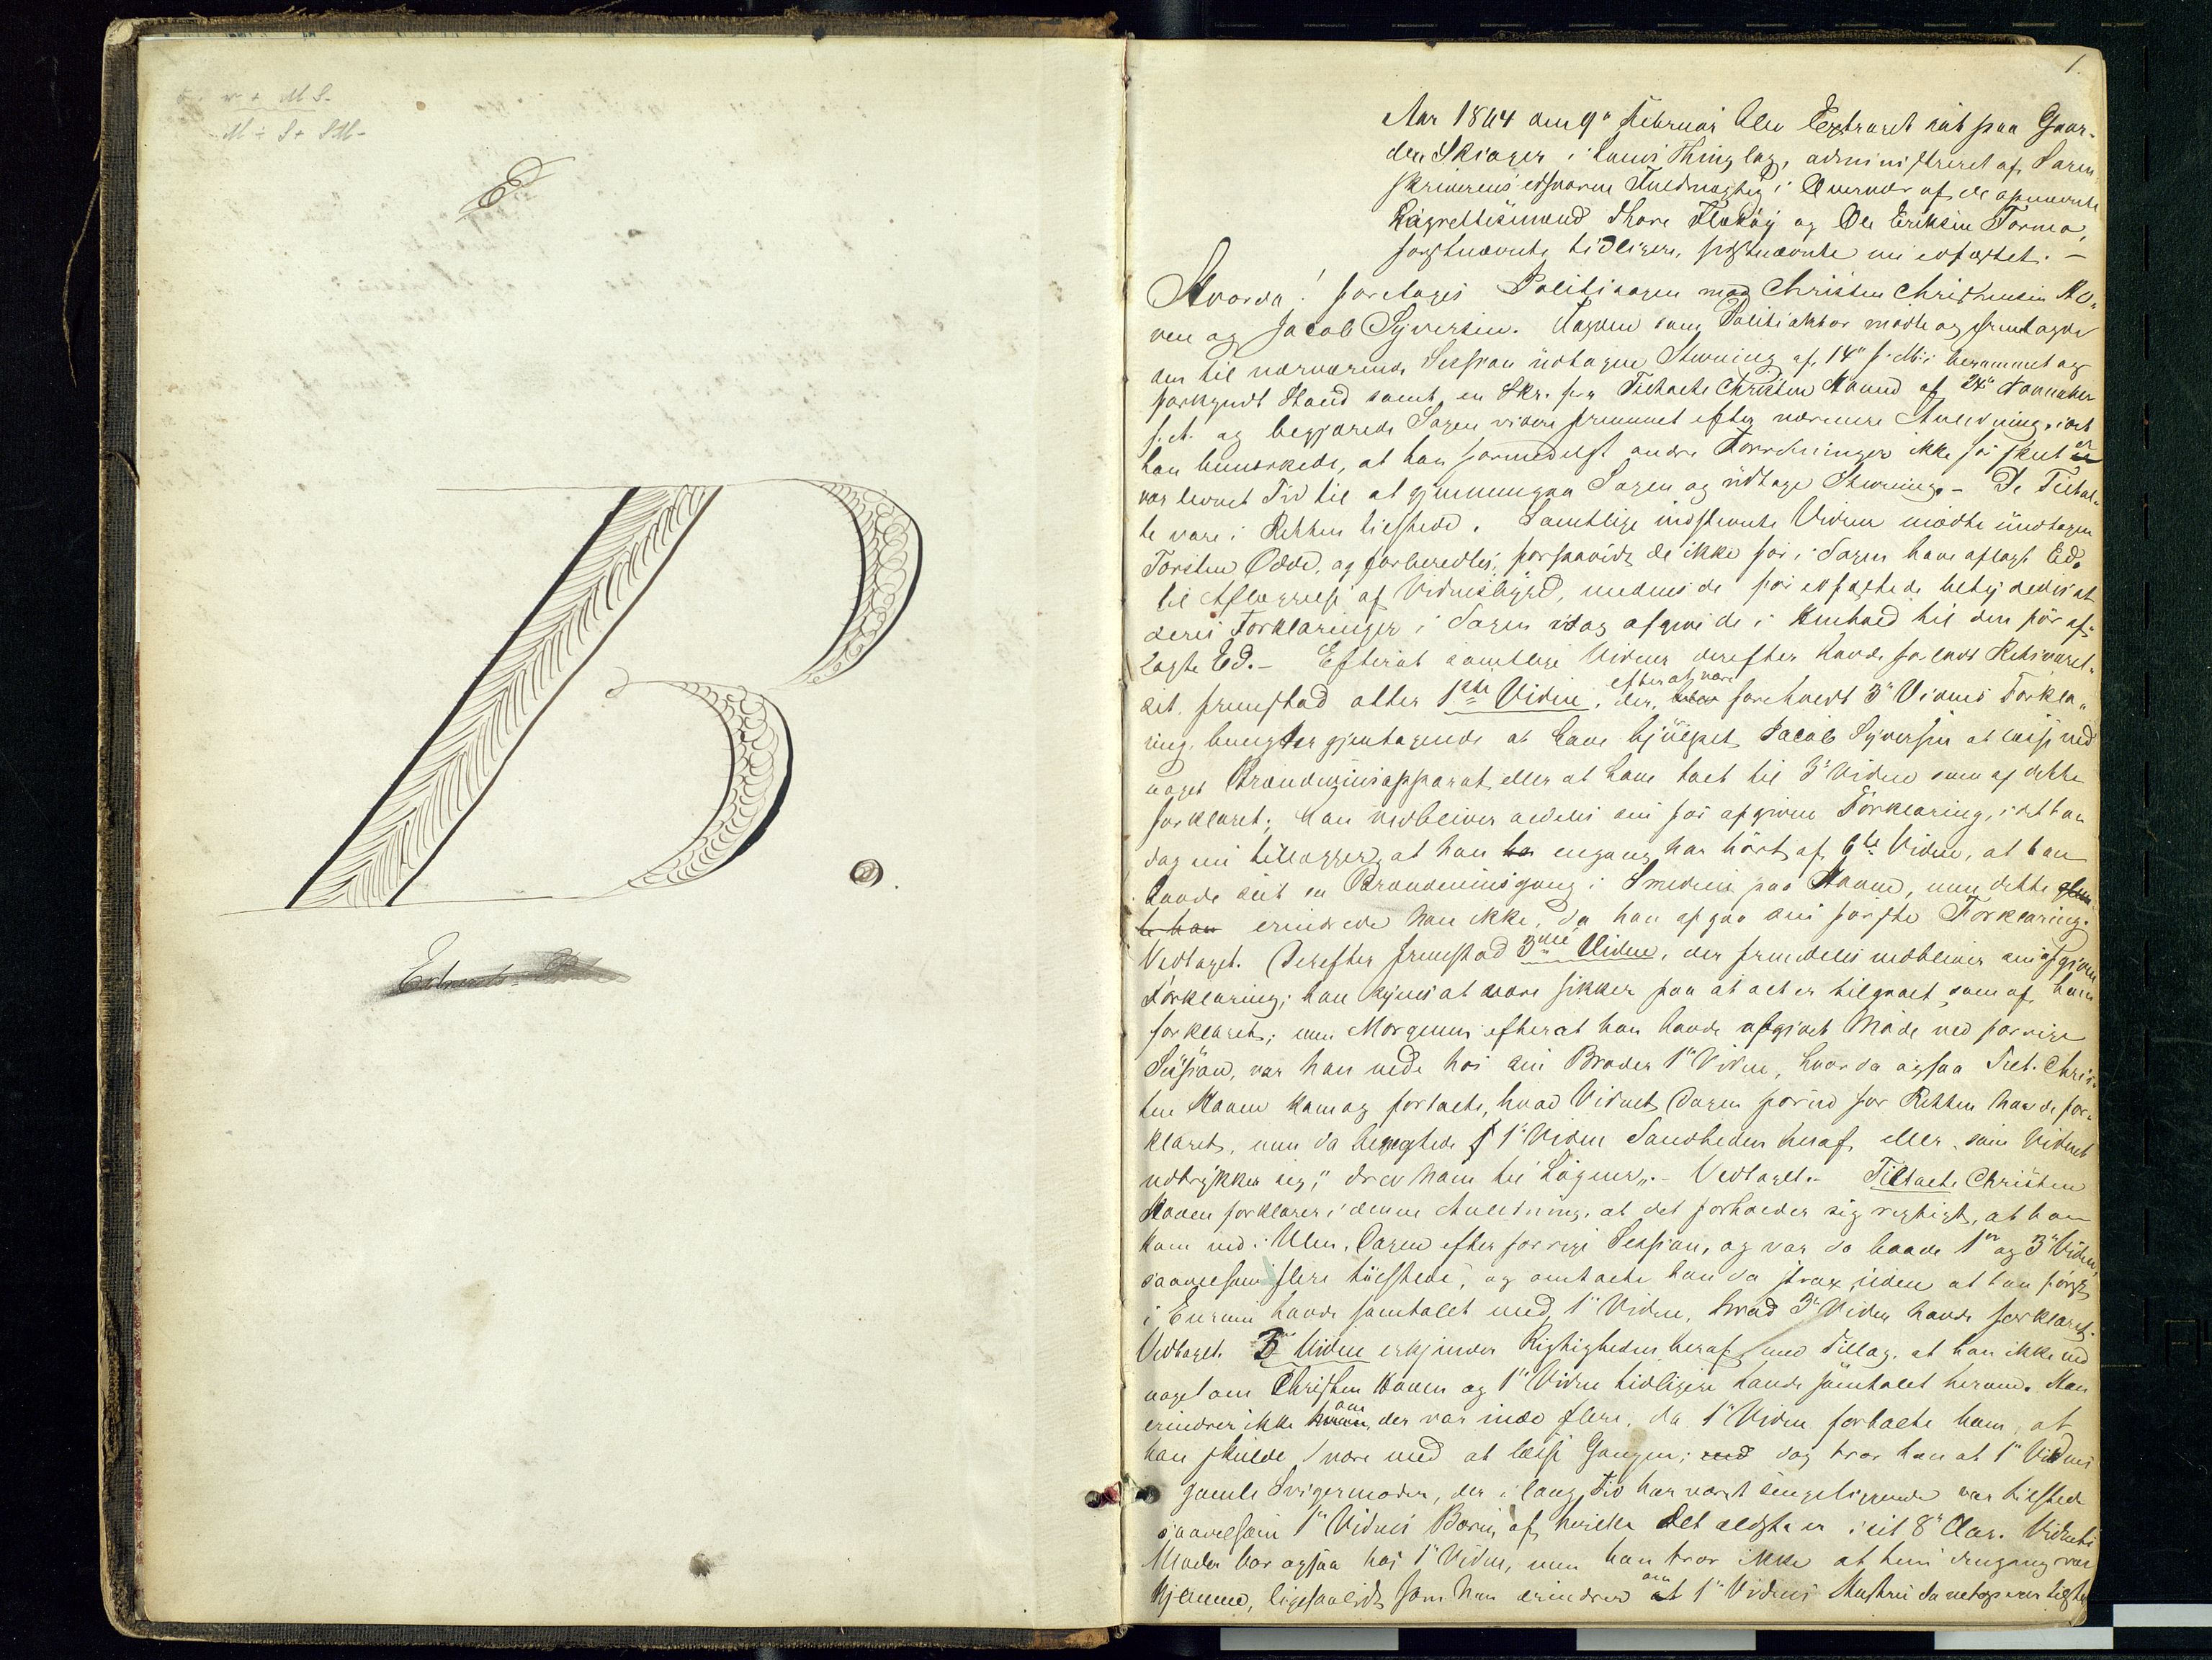 r + M S.
M ÷ S + SM-
E
B.
1.
Aar 1864 den 9de Februar blev Extraret sat paa Gaar-
den Skiager i Loms Thinglag, administreret af Soren-
skriverens edsvorne Fuldmægtig i Overvær af de opnævnte
Lagrettesmænd Thore Flækøy og Ole Eriksen Formo,
førstnævnte tidligere, sidstnævnte nu edfæstet. -
Hvorda! foretoges Politisagen mod Christen Christensen Ho-
ven og Jacob Syversen. som Politiaktor mødte og fremlagde
den til nærværende Session udtagne Stevning af 14de f. M. i berammet og
forkyndt Stand samt en Skr. fra Tiltalte Christen af 24de November
f. A. og begjærede Sagen videre fremmet efter nærmere Anledning, idet
han bemærkede, at han formedelst andre Forretninger ikke før sidst er
var levnet Tid til at gjennemgaa Sagen og udtage Stevning. - De Tiltal-
te vare i Retten tilstede. Samtlige indstevnte Vidner mødte undtagen
Torsten Odde, og forberedtes, forsaavidt de ikke før i Sagen have aflagt Ed,
til Aflæggelse af Vidnesbyrd, medens de før edfæstede betydedes at
deres Forklaringer i Sagen idag afgives de i Henhold til den før af-
lagte Ed. - Efterat samtlige Vidner derefter havde forladt Retsværel-
set, fremstod atter 1ste Vidne, der, efter at være foreholdt 3de Vidnes Forkla-
ring, benegter gjentagende at have hjulpet Jacob Syversen at læsse ned
noget Brændevinsapparat eller at have talt til 3de Vidne som af dette
forklaret; han vedbliver aldeles sin før afgivne Forklaring, idet han
dog nu tillægger, at han ha engang har hørt af 6te Vidne, at han
havde seet en Brændevinsgang i Smedien paa, men dette glem-
te han erindrede han ikke, da han afgav sin første Forklaring.
Vedtaget. Derefter fremstod 3die Vidne, der fremdeles vedbliver sin afgivne
Forklaring; han synes at være sikker paa at det er tilgaaet som af ham
forklaret; om Morgenen efterat han havde afgivet Møde ved forrige
Session, var han nede hos sin Broder 1ste Vidne, hvor da ogsaa Tilt. Chris-
ten kom og fortalte, hvad Vidnet Dagen forud for Retten havde for-
klaret, men da benegtede 1ste Vidne Sandheden heraf, eller, som Vidnet
udtrykker sig, "drev ham til Løgner". - Vedtaget. - Tiltalte Christen
forklarer i denne Anledning, at det forholder sig rigtigt, at han
kom ned i Ulen, Dagen efter forrige Session, og var da baade 1ste og 3de Vidne,
saavelsom flere tilstede, og omtalte han da strax, uden at han først
i Enrum havde samtalet med 1ste Vidne, hvad 3de Vidne havde forklaret.
Vedtaget. 3de Vidne erkjender Rigtigheden heraf med Tillæg, at han ikke ved
noget om Christen og 1ste Vidne tidligere havde samtalet herom. Han
erindrer ikke hvem om der var inde flere, da 1ste Vidne fortalte ham, at
han skulde være med at læsse Gangen; med dog tror han at 1ste Vidnes
gamle Svigermoder, der i lang Tid har været sengeliggende var tilstede
saavelsom 1ste Vidnes Børn, af hvilke det ældste er i sit 8de Aar. Vidnets
Moder bor ogsaa hos 1ste Vidne, men han tror ikke at hun dengang var
hjemme, ligesaalidt som han erindrer om at 1ste Vidnes Hustru da netop var tilstede